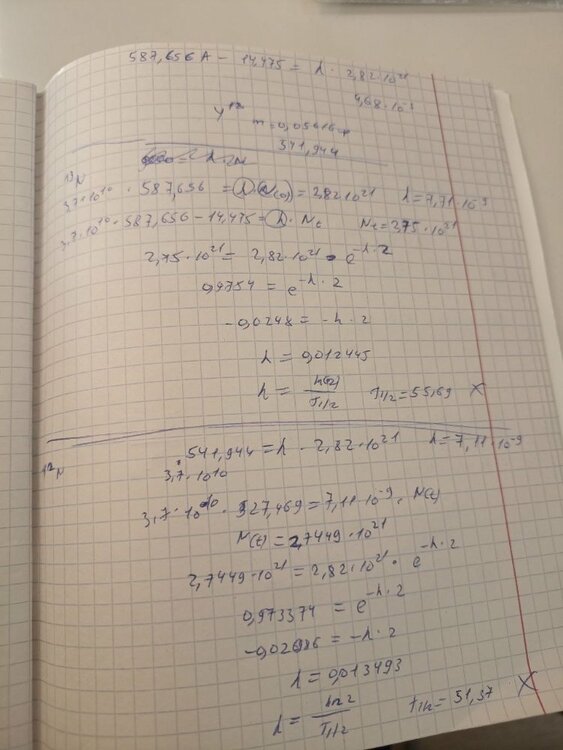 587,656 A - 14,475 = λ · 2,82·10²¹
m = 0,05616
541,944
¹³N
3,7·10¹⁰ · 587,656 = λ · N(0) = 2,82·10²¹ λ = 7,71·10⁻⁹
3,7·10¹⁰ · 587,656 - 14,475 = λ · Nt Nt = 2,75·10²¹
2,75·10²¹ = 2,82·10²¹ · e^-λ·2
0,9754 = e^-λ·2
-0,0248 = -λ·2
λ = 0,012445
λ = ln(2)/T1/2 T1/2 = 55,69 X
¹²N
541,944 = λ · 2,82·10²¹ λ = 7,11·10⁻⁹
· 3,7·10¹⁰
3,7·10¹⁰ · 527,469 = 7,11·10⁻⁹ · N(t)
N(t) = 2,7449·10²¹
2,7449·10²¹ = 2,82·10²¹ · e^-λ·2
0,973374 = e^-λ·2
-0,026986 = -λ·2
λ = 0,013493
λ = ln2/T1/2 T1/2 = 51,37 X